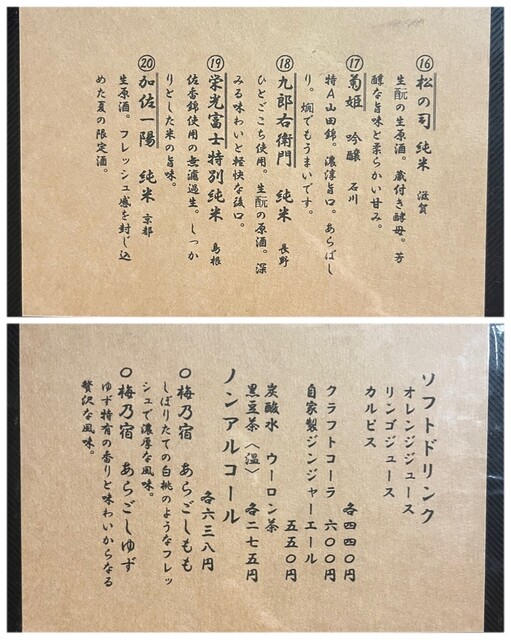 ⑯松の司 純米 滋賀
生酛の生原酒。蔵付き酵母。芳
醇な旨味と柔らかい甘み。
⑰菊姫 吟醸 石川
特A山田錦。濃淳旨口。あらばし
り。燗でもうまいです。
⑱九郎右衛門 純米 長野
ひとごこち使用。生酛の原酒。深
みる味わいと軽快な後口。
⑲栄光冨士特別純米 島根
佐香錦使用の無濾過生。しっか
りとした米の旨味。
⑳加佐一陽 純米 京都
生原酒。フレッシュ感を封じ込
めた夏の限定酒。
ソフトドリンク
オレンジジュース
リンゴジュース
カルピス
各四四〇円
クラフトコーラ 六〇〇円
自家製ジンジャーエール
五五〇円
炭酸水 ウーロン茶
黒豆茶〈温〉 各二七五円
ノンアルコール
各六三八円
〇梅乃宿 あらごしもも
しぼりたての白桃のようなフレッ
シュで濃厚な風味。
〇梅乃宿 あらごしゆず
ゆず特有の香りと味わいからなる
贅沢な風味。